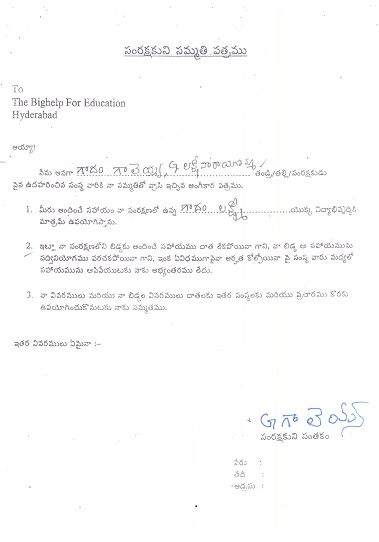 సంరక్షకుని సమ్మతి పత్రము
To
The Bighelp For Education
Hyderabad
అయ్యా!
నేను అనగా గాదం గాలెయ్య, G లక్ష్మీనారాయణమ్మ తండ్రి/తల్లి/సంరక్షకుడు
పైన ఉదహరించిన సంస్థ వారికి నా సమ్మతితో వ్రాసి ఇచ్చిన అంగీకార పత్రము.
1. మీరు అందించే సహాయం నా సంరక్షణలో ఉన్న గాదం లక్ష్మి యొక్క విద్యాభివృద్ధికి
మాత్రమే ఉపయోగిస్తాను.
2. ఇట్లా నా సంరక్షణలోని బిడ్డకు అందించే సహాయము దాత లేకపోయినా గాని, నా బిడ్డ ఆ సహాయమును
సద్వినియోగము పరచకపోయినా గాని, ఇంక ఏవిధముగానైనా అర్హత కోల్పోయినా పై సంస్థ వారు మధ్యలో
సహాయమును ఆపివేయుటకు నాకు అభ్యంతరము లేదు.
3. నా వివరములు మరియు నా బిడ్డల వివరములు దాతలకు ఇతర సంస్థలకు మరియు ప్రచారము కొరకు
ఉపయోగించుకొనుటకు నాకు సమ్మతము.
ఇతర వివరములు ఏమైనా :-
G గాలెయ్య
సంరక్షకుని సంతకం
పేరు :
తేదీ :
అడ్రసు :